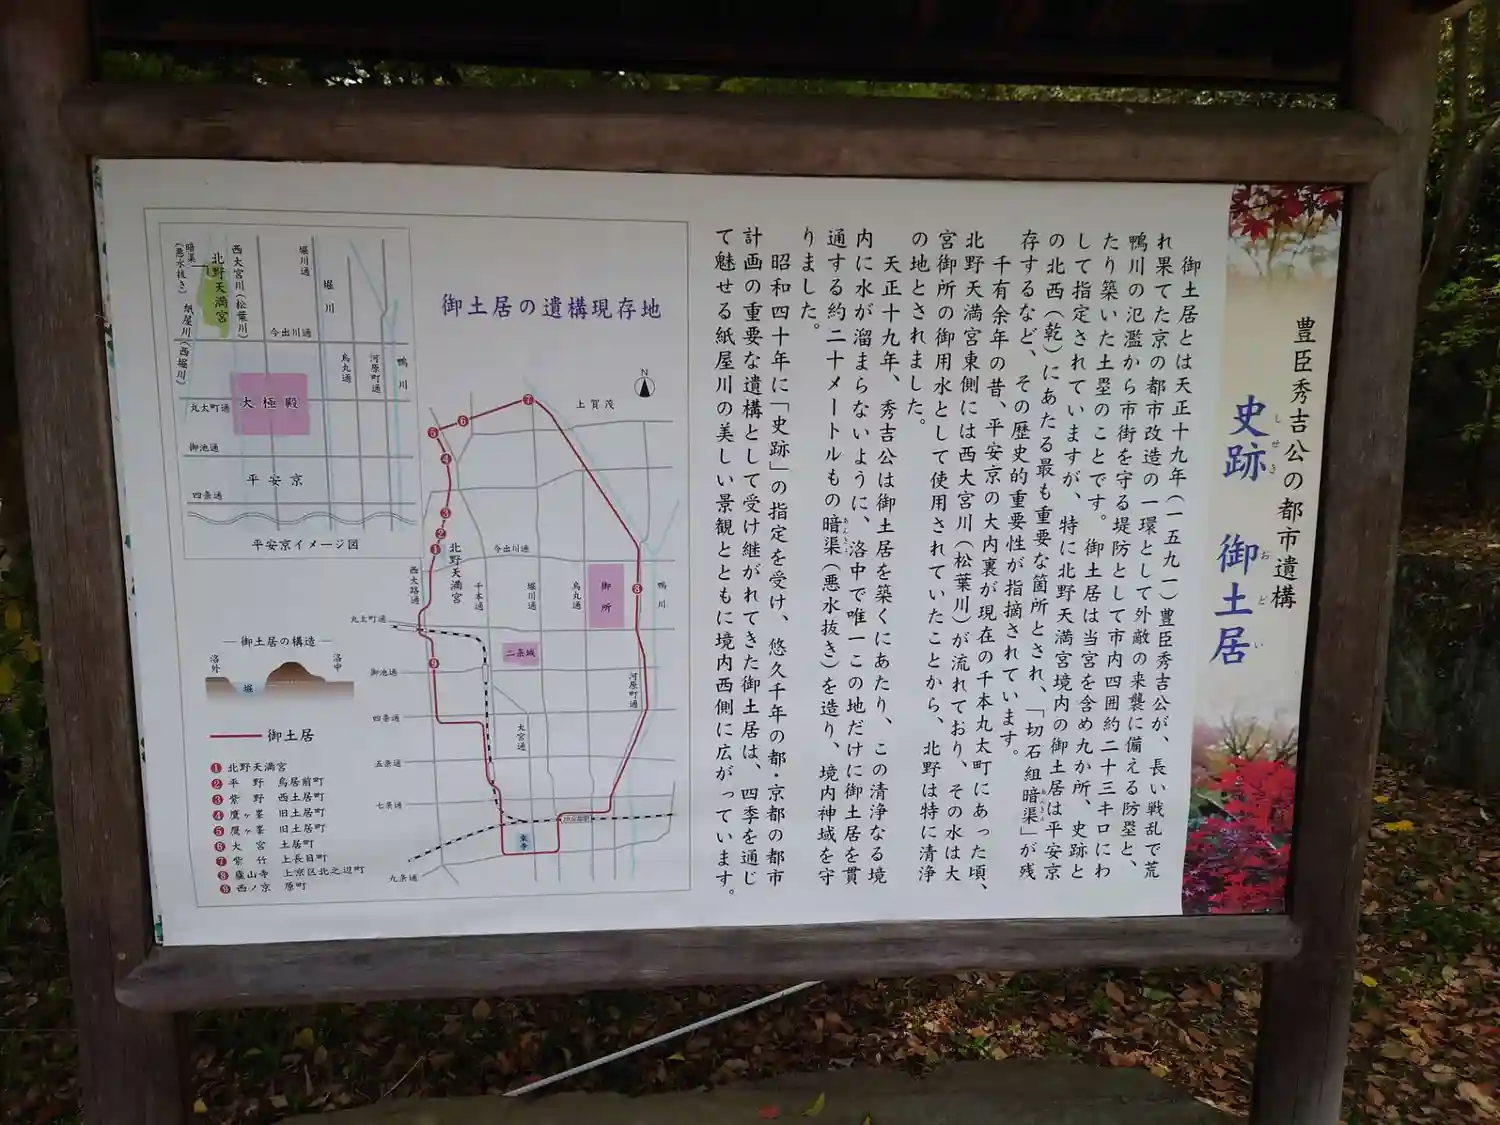 豊臣秀吉公の都市遺構
史跡 御土居
しせき おどい
御土居とは天正十九年(一五九一)豊臣秀吉公が、長い戦乱で荒
れ果てた京の都市改造の一環として外敵の来襲に備える防塁と、
鴨川の氾濫から市街を守る堤防として市内四囲約二十三キロにわ
たり築いた土塁のことです。御土居は当宮を含め九か所、史跡と
して指定されていますが、特に北野天満宮境内の御土居は平安京
の北西(乾)にあたる最も重要な箇所とされ、「切石組暗渠」が残
あんきょ
存するなど、その歴史的重要性が指摘されています。
千有余年の昔、平安京の大内裏が現在の千本丸太町にあった頃、
北野天満宮東側には西大宮川(松葉川)が流れており、その水は大
宮御所の御用水として使用されていたことから、北野は特に清浄
の地とされました。
天正十九年、秀吉公は御土居を築くにあたり、この清浄なる境
内に水が溜まらないように、洛中で唯一この地だけに御土居を貫
通する約二十メートルもの暗渠(悪水抜き)を造り、境内神域を守
あんきょ
りました。
昭和四十年に「史跡」の指定を受け、悠久千年の都・京都の都市
計画の重要な遺構として受け継がれてきた御土居は、四季を通じ
て魅せる紙屋川の美しい景観とともに境内西側に広がっています。
御土居の遺構現存地
暗渠
(悪水抜き)
北野天満宮
西大宮川(松葉川)
堀川通
堀川
紙屋川(西堀川)
今出川通
烏丸通
河原町通
鴨川
丸太町通
大極殿
御池通
平安京
四条通
平安京イメージ図
N
上賀茂
7
6
5
4
3
2
1
8
9
北野天満宮
今出川通
西大路通
千本通
堀川通
烏丸通
御所
鴨川
丸太町通
二条城
御池通
河原町通
四条通
大宮通
五条通
七条通
東寺
九条通
御土居の構造
洛外
洛中
堀
御土居
1 北野天満宮
2 平野 鳥居前町
3 紫野 西土居町
4 鷹ヶ峯 旧土居町
5 鷹ヶ峯 旧土居町
6 大宮 土居町
7 紫竹 上長目町
8 廬山寺 上京区北之辺町
9 西ノ京 原町